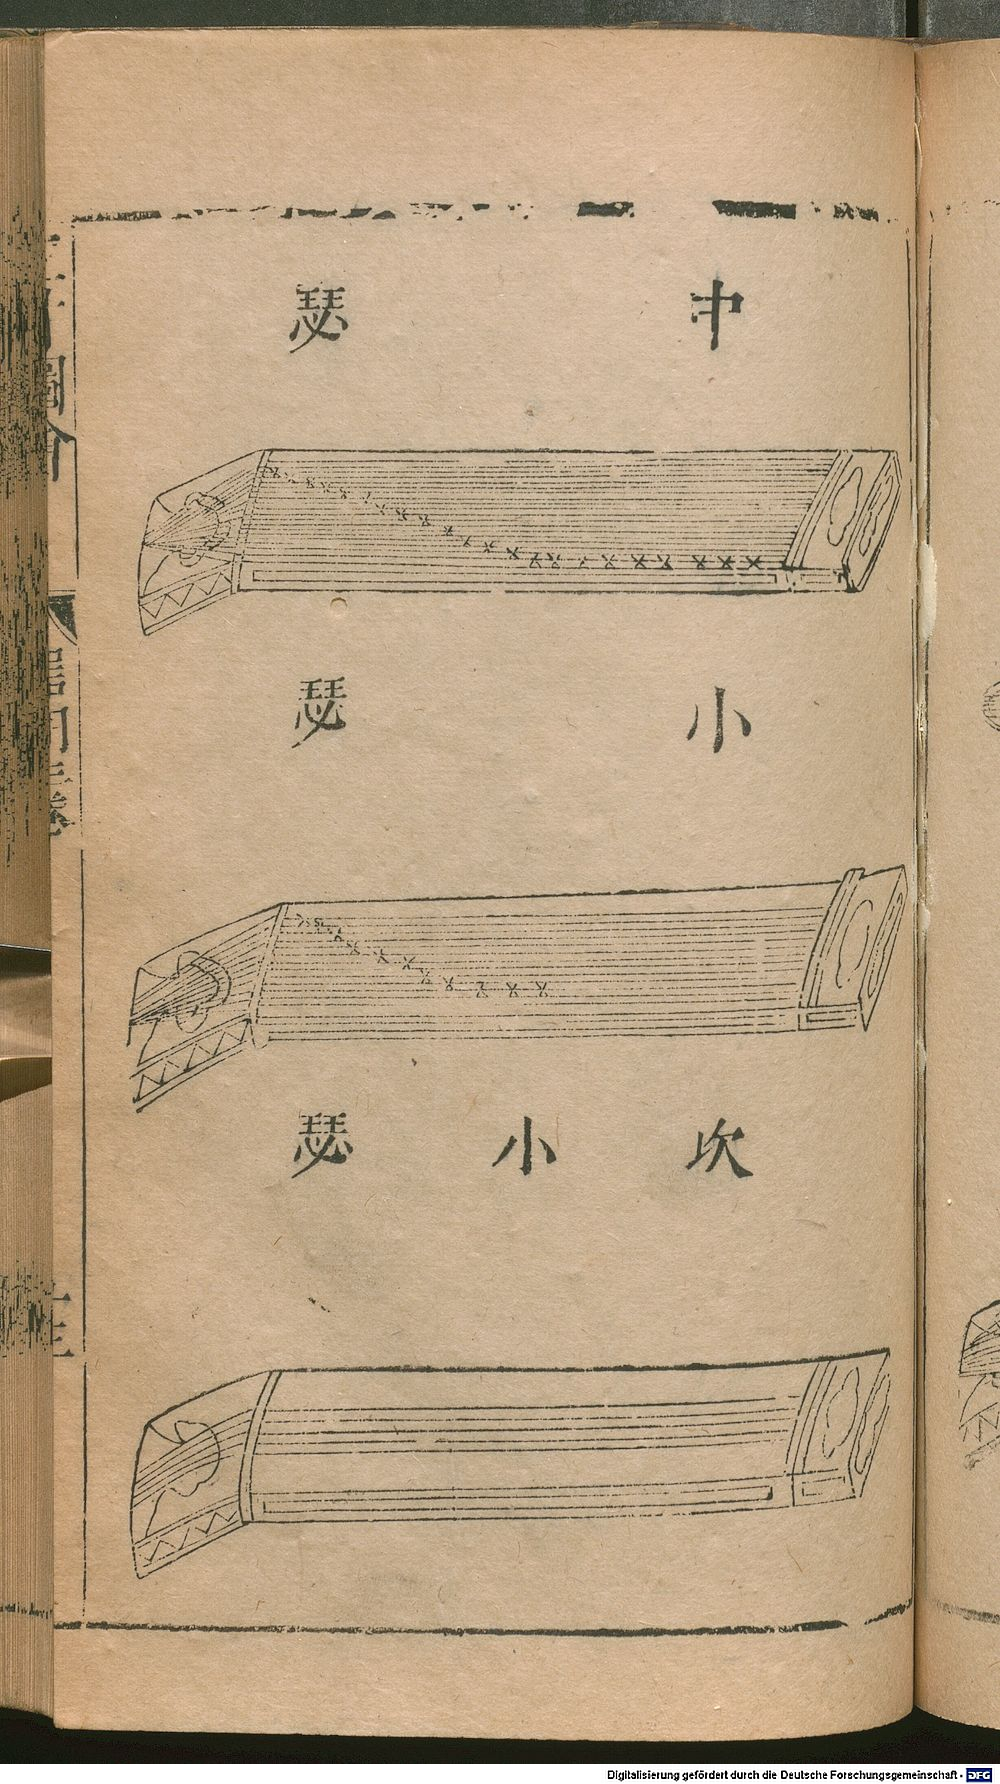 中瑟
小瑟
次小瑟
圖會
三卷
Digitalisierung gefördert durch die Deutsche Forschungsgemeinschaft - DFG